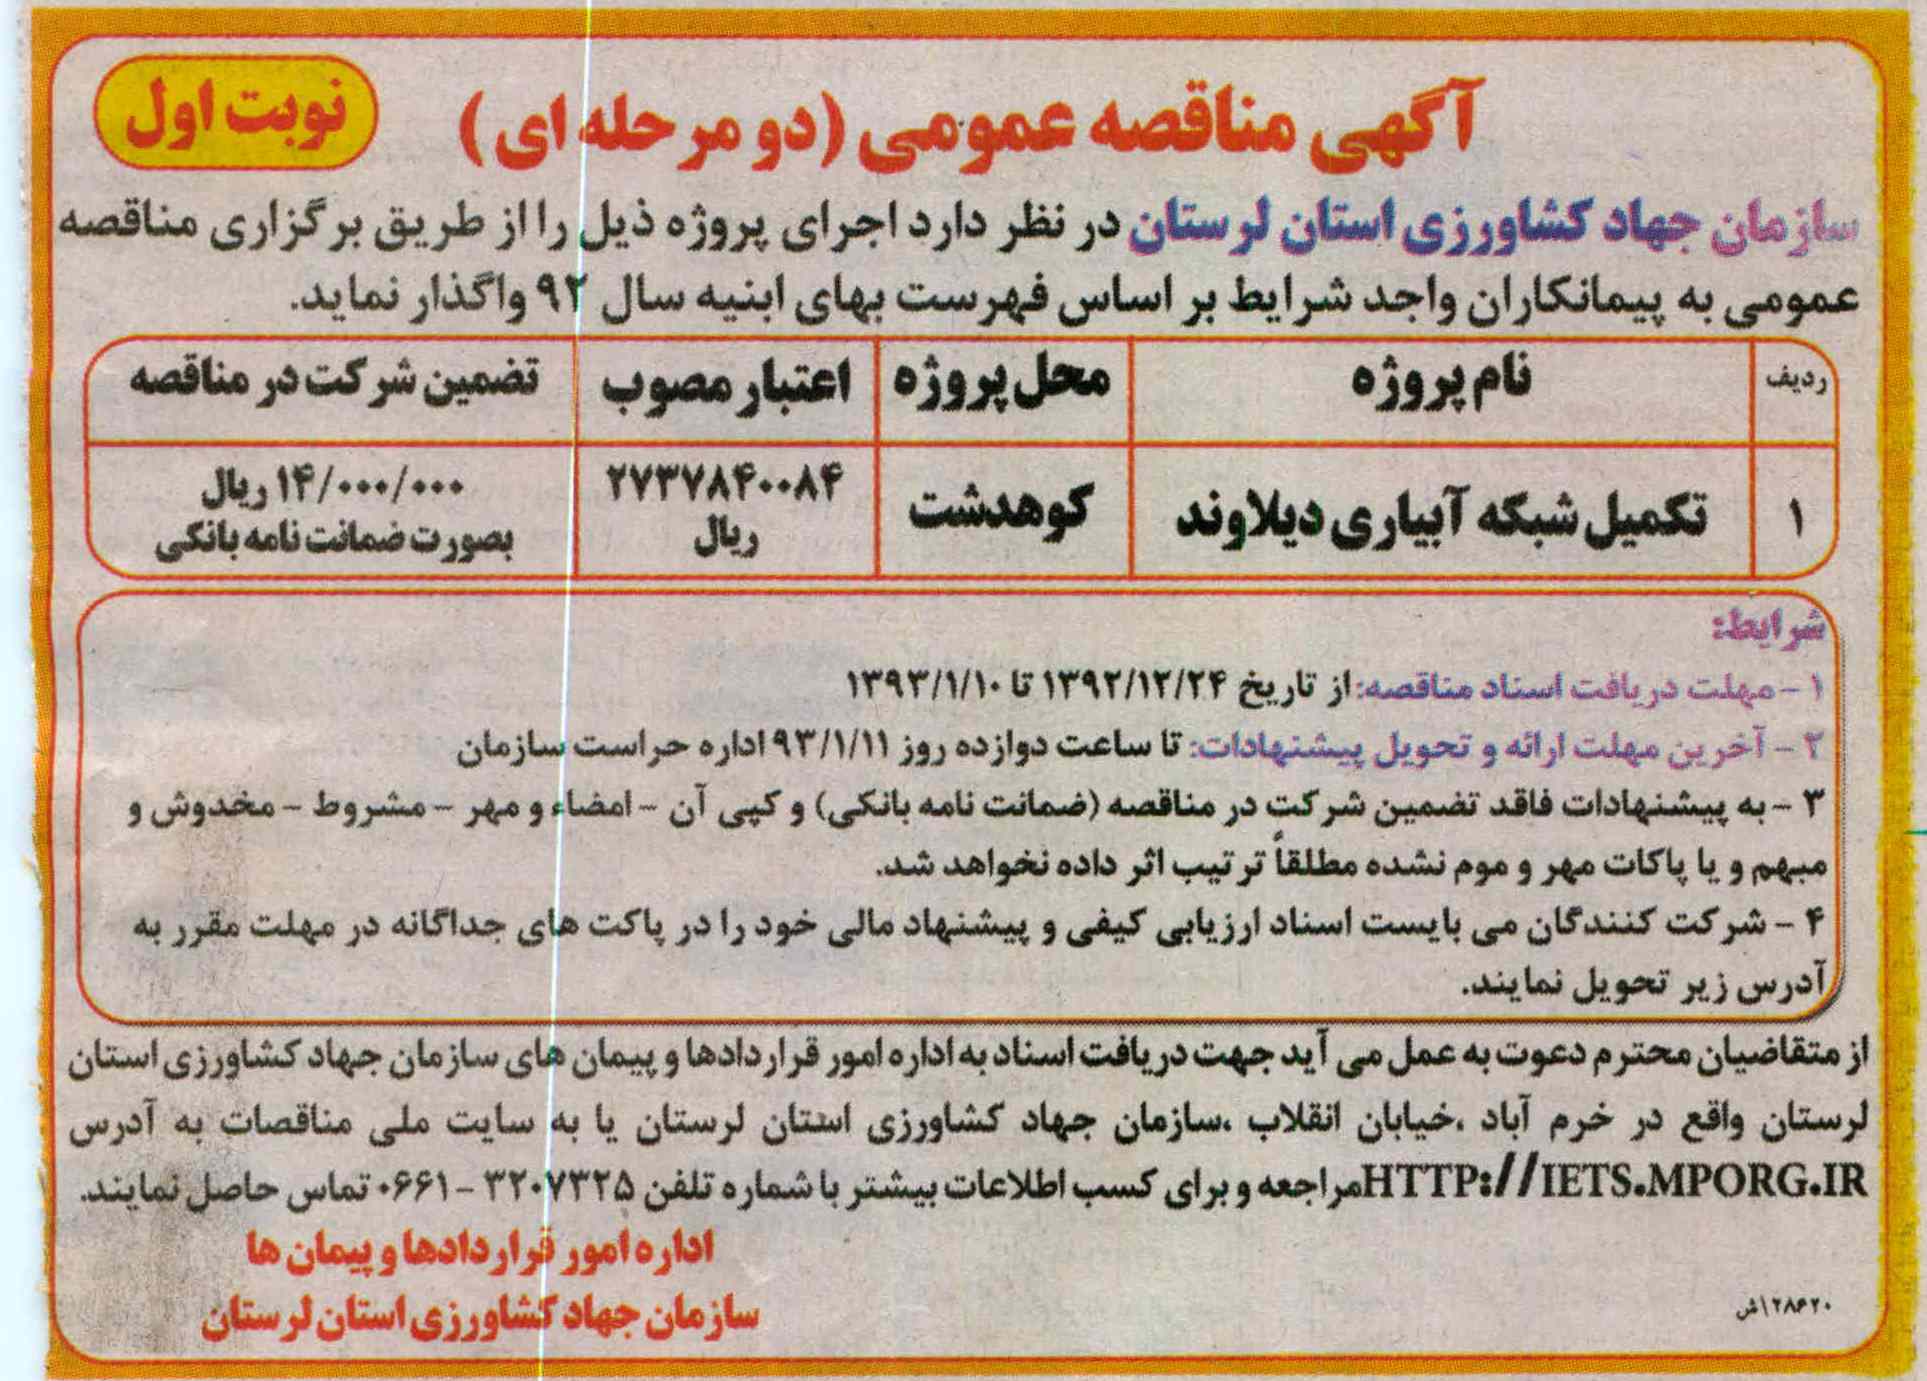 آگهی مناقصه عمومی (دو مرحله ای)
نوبت اول
سازمان جهاد کشاورزی استان لرستان در نظر دارد اجرای پروژه ذیل را از طریق برگزاری مناقصه
عمومی به پیمانکاران واجد شرایط بر اساس فهرست بهای ابنیه سال ۹۲ واگذار نماید.
ردیف نام پروژه محل پروژه اعتبار مصوب تضمین شرکت در مناقصه
۱ تکمیل شبکه آبیاری دیلاوند کوهدشت ۲۷۳۷۸۴۰۰۸۴ ۱۴/۰۰۰/۰۰۰ ریال
ریال بصورت ضمانت نامه بانکی
شرایط:
۱ - مهلت دریافت اسناد مناقصه: از تاریخ ۱۳۹۲/۱۲/۲۴ تا ۱۳۹۳/۱/۱۰
۲ - آخرین مهلت ارائه و تحویل پیشنهادات: تا ساعت دوازده روز ۹۳/۱/۱۱ اداره حراست سازمان
۳ - به پیشنهادات فاقد تضمین شرکت در مناقصه (ضمانت نامه بانکی) و کپی آن - امضاء و مهر - مشروط - مخدوش و
مبهم و یا پاکات مهر و موم نشده مطلقاً ترتیب اثر داده نخواهد شد.
۴ - شرکت کنندگان می بایست اسناد ارزیابی کیفی و پیشنهاد مالی خود را در پاکت های جداگانه در مهلت مقرر به
آدرس زیر تحویل نمایند.
از متقاضیان محترم دعوت به عمل می آید جهت دریافت اسناد به اداره امور قراردادها و پیمان های سازمان جهاد کشاورزی استان
لرستان واقع در خرم آباد ،خیابان انقلاب ،سازمان جهاد کشاورزی استان لرستان یا به سایت ملی مناقصات به آدرس
HTTP://IETS.MPORG.IR مراجعه و برای کسب اطلاعات بیشتر با شماره تلفن ۳۲۰۷۳۲۵ - ۰۶۶۱ تماس حاصل نمایند.
اداره امور قراردادها و پیمان ها
سازمان جهاد کشاورزی استان لرستان
۲۸۶۲۰\اش